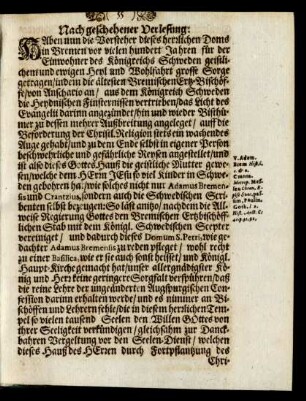 Nach geschehener Verlesung:
HAben nun die Vorsteher dieses herrlichen Doms
in Bremen vor vielen hundert Jahren für der
Einwohner des Königreichs Schweden geistli-
chen und ewigen Heyl und Wohlfahrt grosse Sorge
getragen/indem die ältesten Bremenschen Ertz-Bischöf-
fe/von Anschario an/ aus dem Königreich Schweden
die Heydnischen Finsternissen vertrieben/das Licht des
Evangelii darinn angezündet/hin und wieder Bisthü-
mer zu dessen mehrer Außbreitung angeleget / auff die
Beforderung der Christl. Religion stets ein wachendes
Auge gehabt/und zu dem Ende selbst in eigener Person
beschwehrliche und gefährliche Reysen angestellet/und
ist also dieses Gottes Hauß die geistliche Mutter gewe-
sen/welche dem HErrn JEsu so viel Kinder in Schwe-
den gebohren hat/wie solches nicht nur Adamus Bremen-
sis und Crantzius, sondern auch die Schwedischen Scri-
benten selbst bezeugen: So läst anitzo / nachdem die All-
weise Regierung Gottes den Bremischen Ertzbischöff-
lichen Stab mit dem Königl. Schwedischen Scepter
vereiniget / und dadurch dieses Domium S. Petri, wie ge-
dachter Adamus Bremensis zu reden pfleget / wohl recht
zu einer Basilica, wie er sie auch sonst heisset/ und Königl.
Haupt-Kirche gemacht hat/unser allergnädigster Kö-
nig und Herz keine geringere Sorgfalt verspühren/daß
die reine Lehre der ungeänderten Augspurgischen Con-
fession darinn erhalten werde/ und es nimmer an Bi-
schöffen und Lehrern fehle/die in diesem herrlichen Tem-
pel so vielen tausend Seelen den Willen GOttes von
ihrer Seeligkeit verkündigen / gleichsahm zur Danck-
bahren Vergeltung vor den Seelen-Dienst / welchen
dieses Hauß des HErren durch Fortpflantzung des
Chri-
v. Adam.
Brem. Hist.